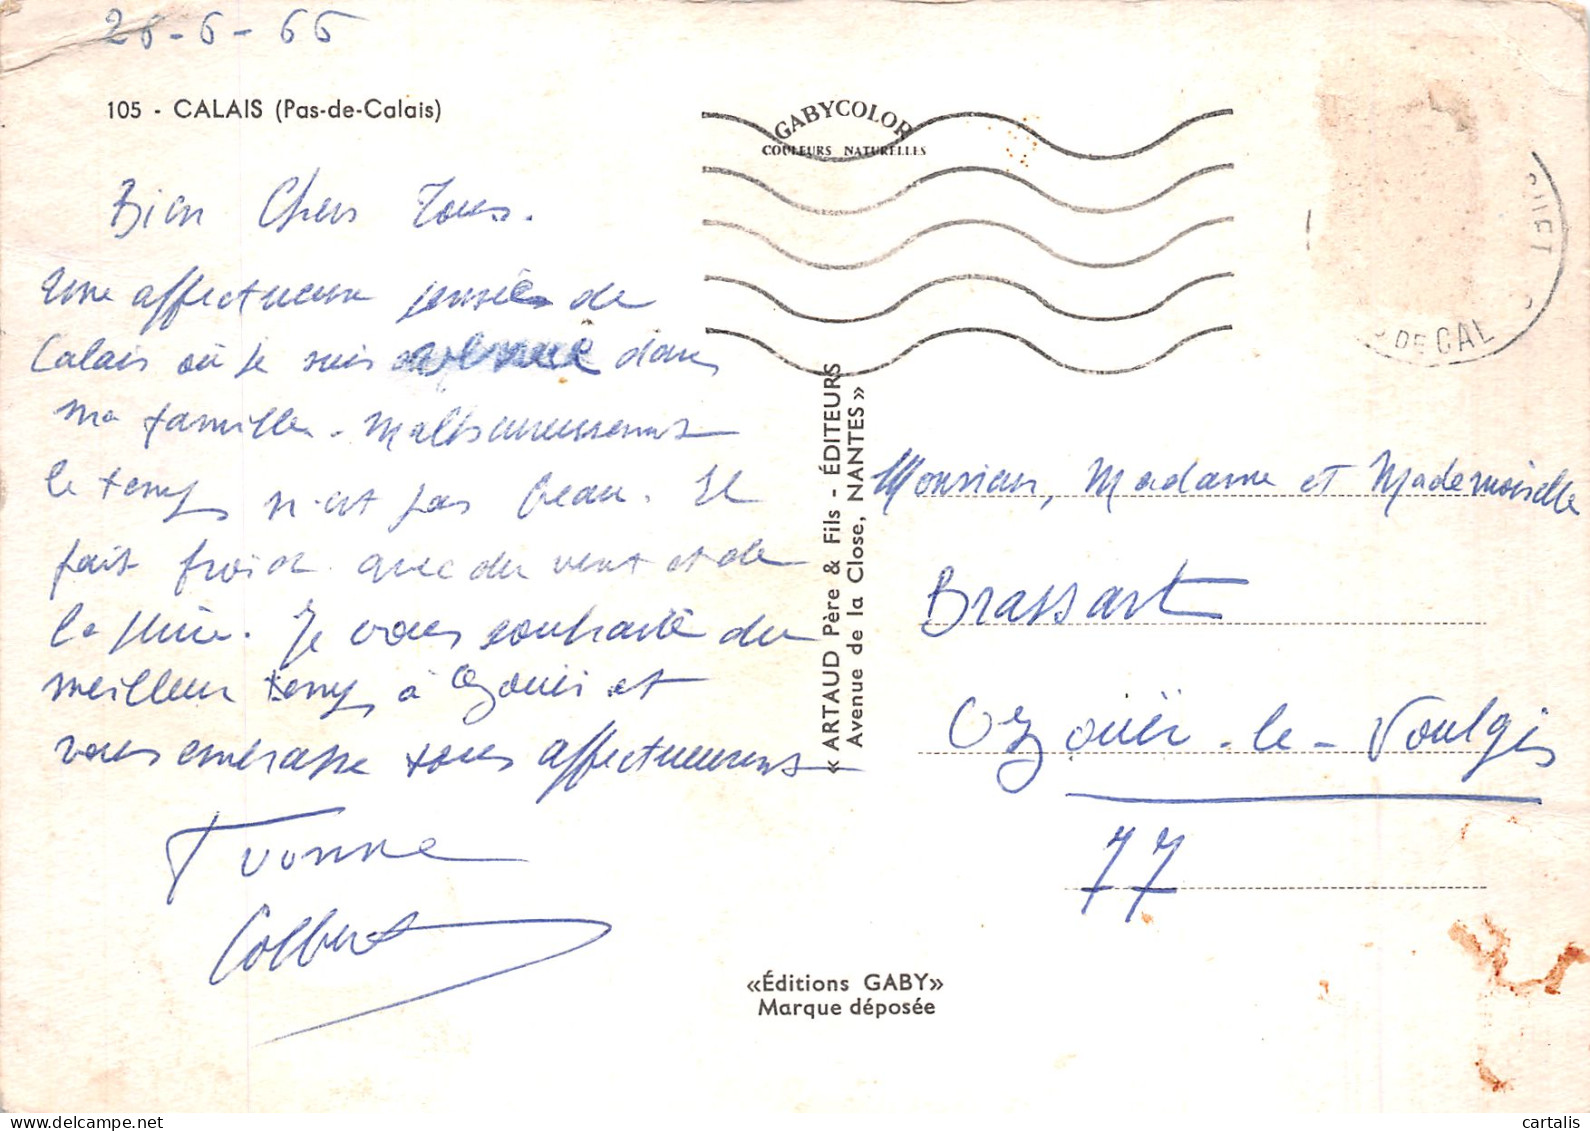 26-6-66
105 - CALAIS (Pas-de-Calais)
Bien Chers Tous.
Une affectueuse pensée de
Calais où je suis dans
ma famille. Malheureusement
le temps n'est pas beau. Il
fait froid avec du vent et de
la pluie. Je vous souhaite du
meilleur temps à Ozouër et
vous embrasse tous affectueusement
Yvonne
Colbert
GABYCOLOR
COULEURS NATURELLES
« ARTAUD Père & Fils - ÉDITEURS
Avenue de la Close, NANTES »
«Éditions GABY»
Marque déposée
DE CAL
Monsieur, Madame et Mademoiselle
Brassart
Ozouër-le-Voulgis
77
105.jpg
cartalis